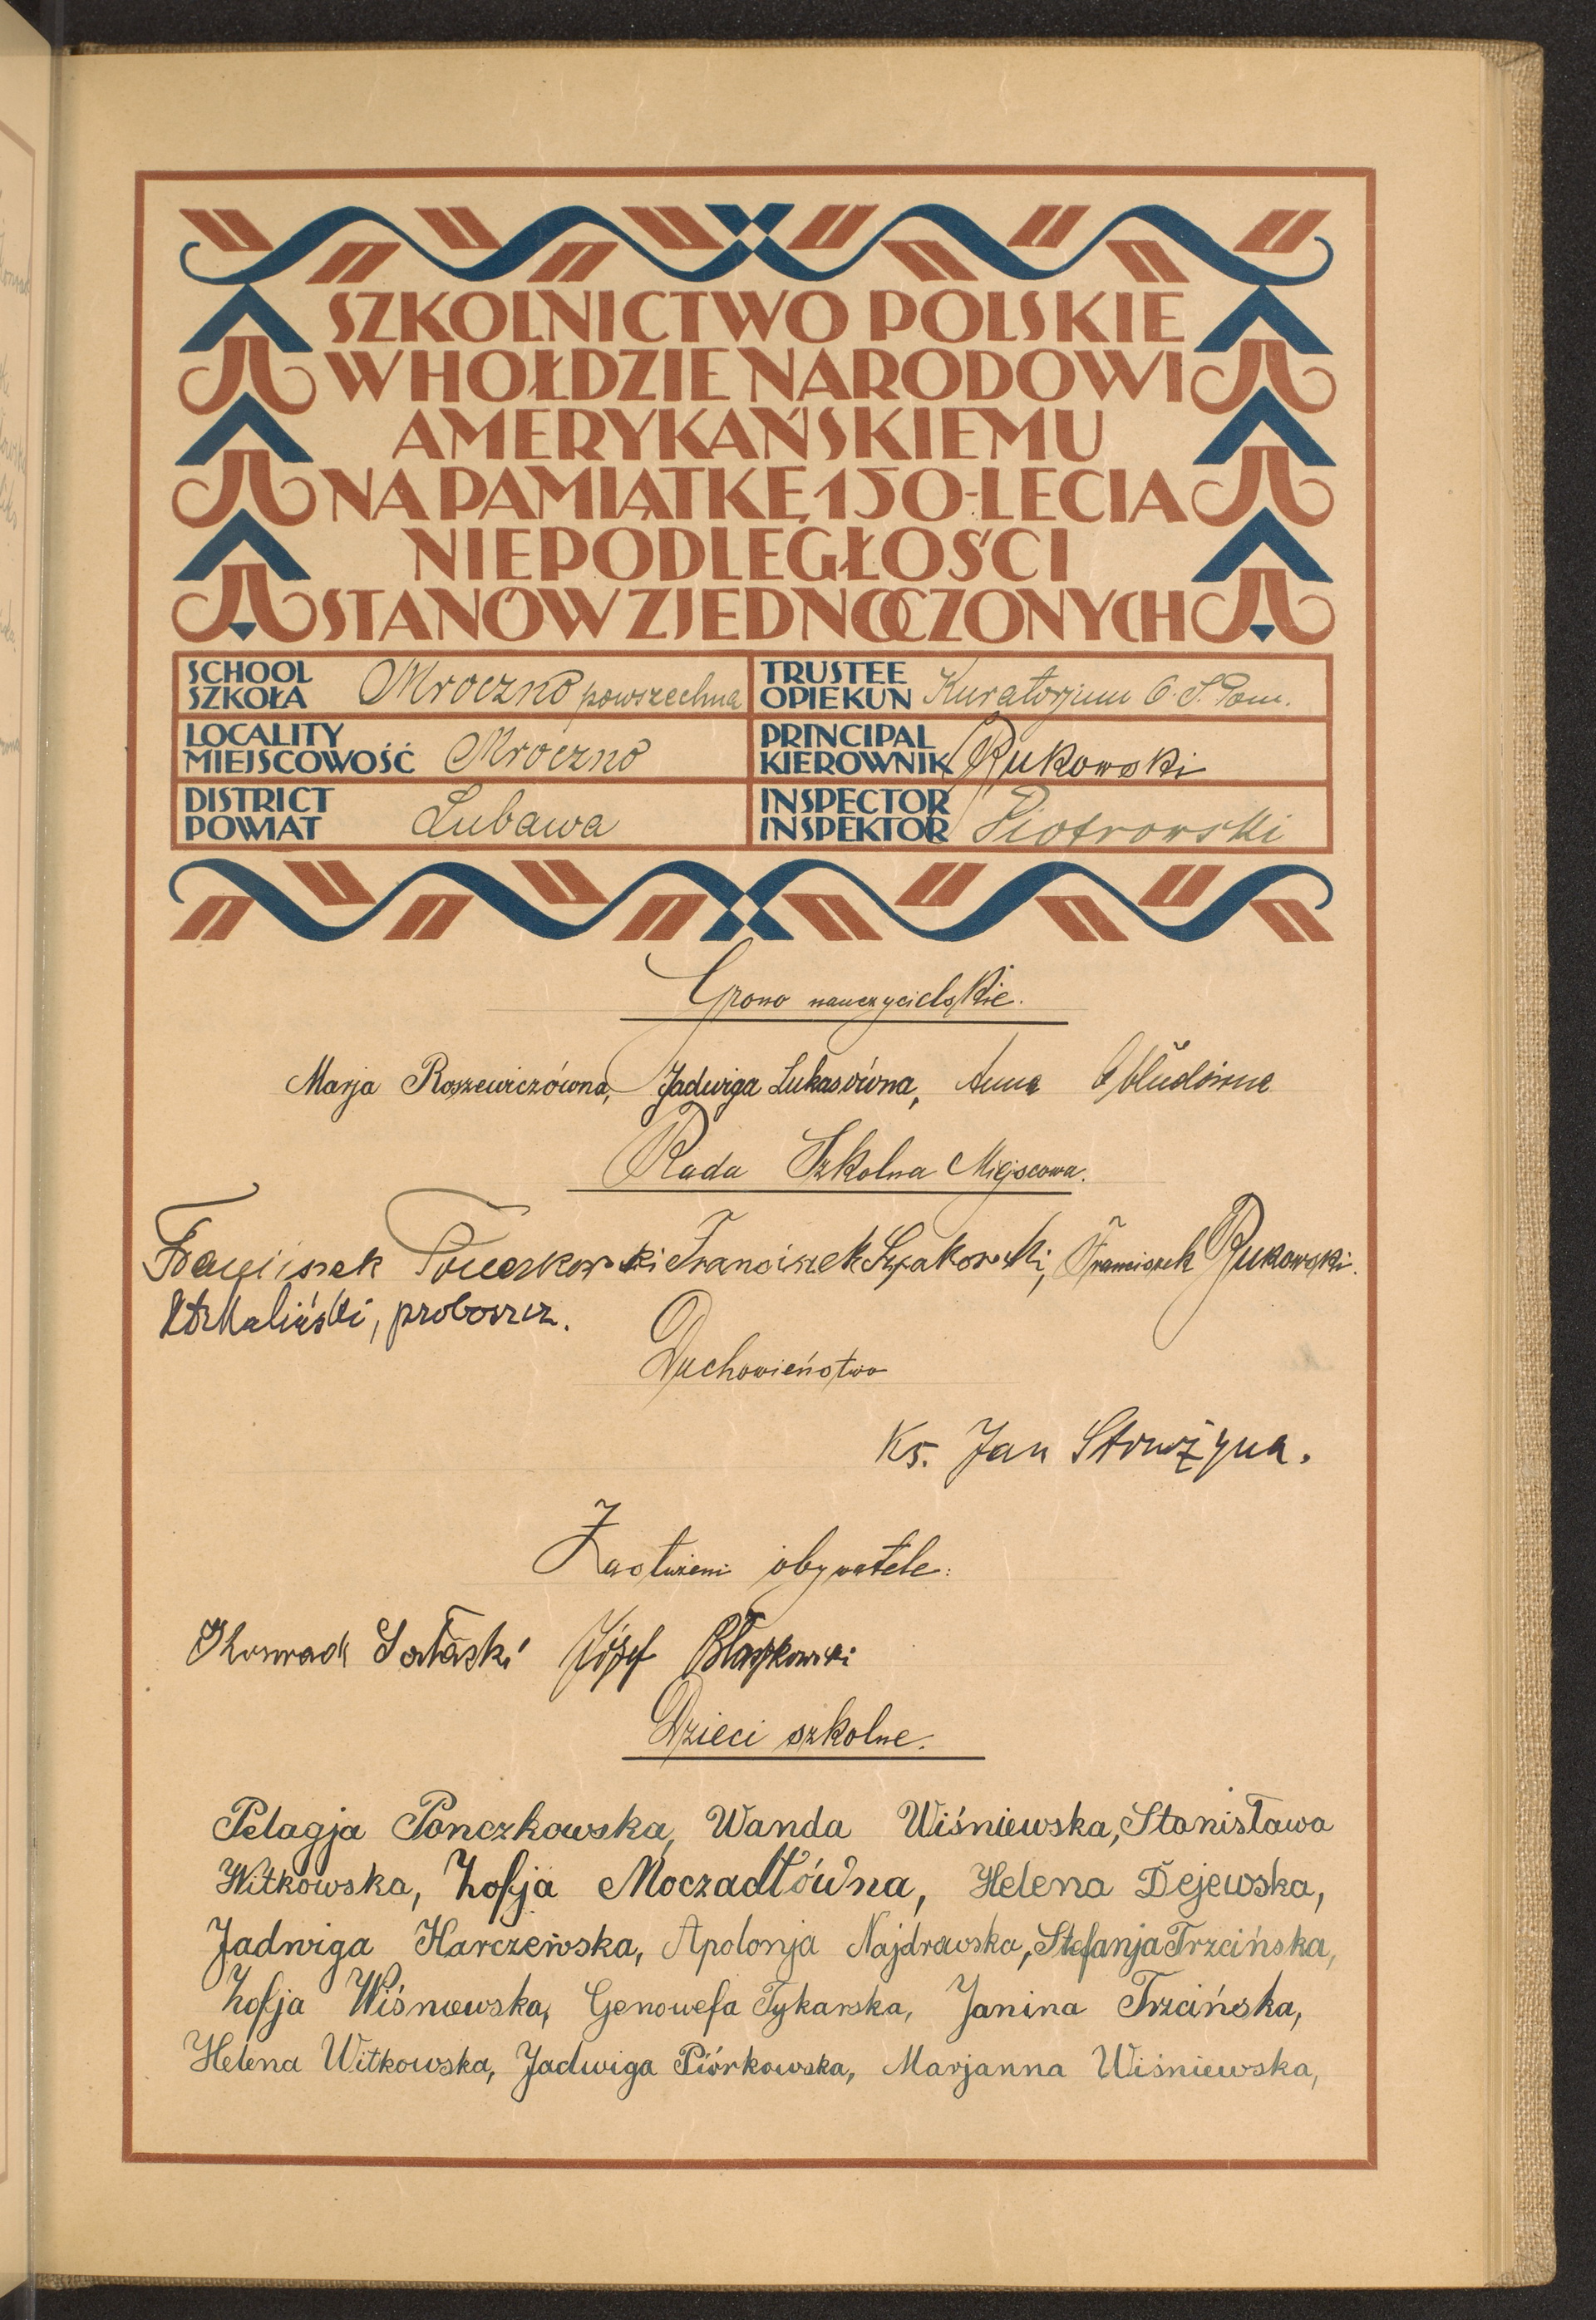 SZKOLNICTWO POLSKIE
W HOŁDZIE NARODOWI
AMERYKAŃSKIEMU
NA PAMIĄTKĘ 150-LECIA
NIEPODLEGŁOŚCI
STANÓW ZJEDNOCZONYCH
SCHOOL
SZKOŁA Mroczno powszechna
TRUSTEE
OPIEKUN Kuratorjum O. S. Pom.
LOCALITY
MIEJSCOWOŚĆ Mroczno
PRINCIPAL
KIEROWNIK Rukowski
DISTRICT
POWIAT Lubawa
INSPECTOR
INSPEKTOR Piotrowski
Grono nauczycielskie.
Marja Roszewiczówna, Jadwiga Lukasówna, Anna
Rada Szkolna Miejscowa.
Franciszek Franciszek Szpakowski, Franciszek Rukowski.
proboszcz.
Duchowieństwo
Ks. Jan Strużyna.
Zasłużeni obywatele:
Konrad Józef Błaszkowski
Dzieci szkolne.
Pelagja Ponczkowska, Wanda Wiśniewska, Stanisława
Witkowska, Zofja Moczadłówna, Helena Dejewska,
Jadwiga Harczewska, Apolonja Najdrowska, Stefanja Trzcińska,
Zofja Wiśniewska, Genowefa Tykarska, Janina Trzcińska,
Helena Witkowska, Jadwiga Piórkowska, Marjanna Wiśniewska,